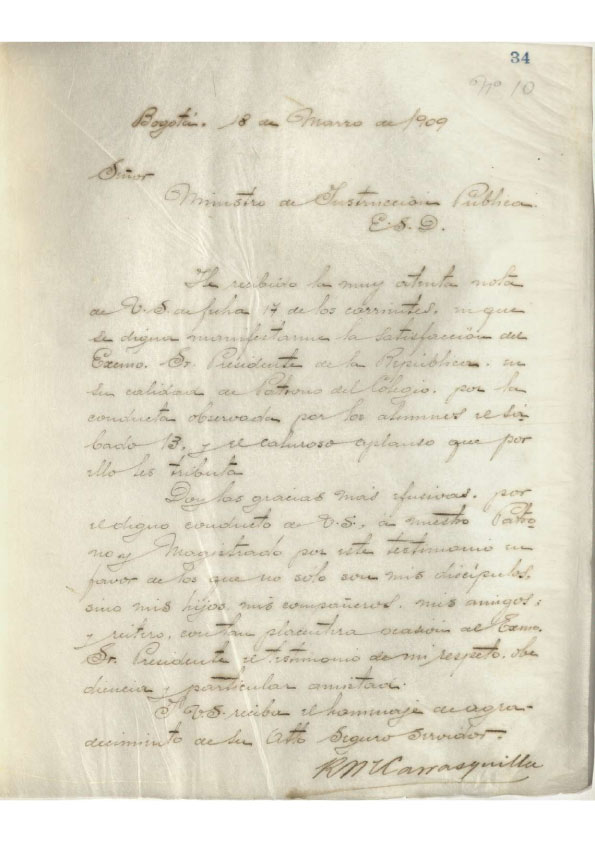 34
Nº 10
Bogotá. 18 de Marzo de 1909
Señor
Ministro de Instruccion Pública.
E. S. D.
He recibido la muy atenta nota
de V. S. de fecha 17 de los corrientes, en que
se digna manifestarme la satisfacción del
Excmo. Sr. Presidente de la República, en
su calidad de Patrono del Colegio, por la
conducta observada por los alumnos el sá-
bado 13, y el caluroso aplauso que por
ello les tributa
Doy las gracias más efusivas, por
el digno conducto de V. S., a nuestro Patro-
no y Magistrado por este testimonio en
favor de los que no sólo son mis discípulos,
sino mis hijos, mis compañeros, mis amigos;
y reitero, con tan placentera ocasion al Excmo.
Sr. Presidente el testimonio de mi respeto, obe
diencia y particular amistad.
V. S. reciba el homenaje de agra-
decimiento de su Atto Seguro Servidor.
R M Carrasquilla